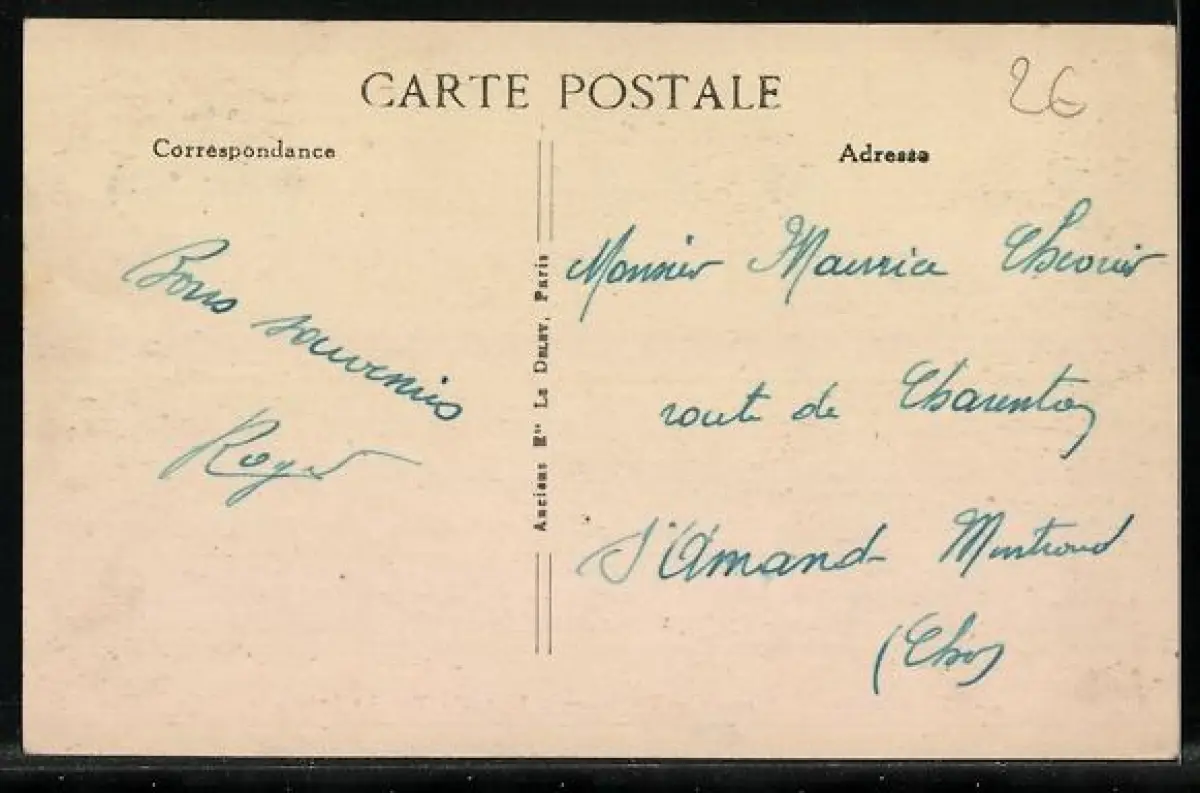 CARTE POSTALE
26
Correspondance
Adresse
Bons
souvenirs
Roger
Anciens Ets Le Deley, Paris
Monsieur Maurice
route de Charenton
St Amand Montrond
(Cher)